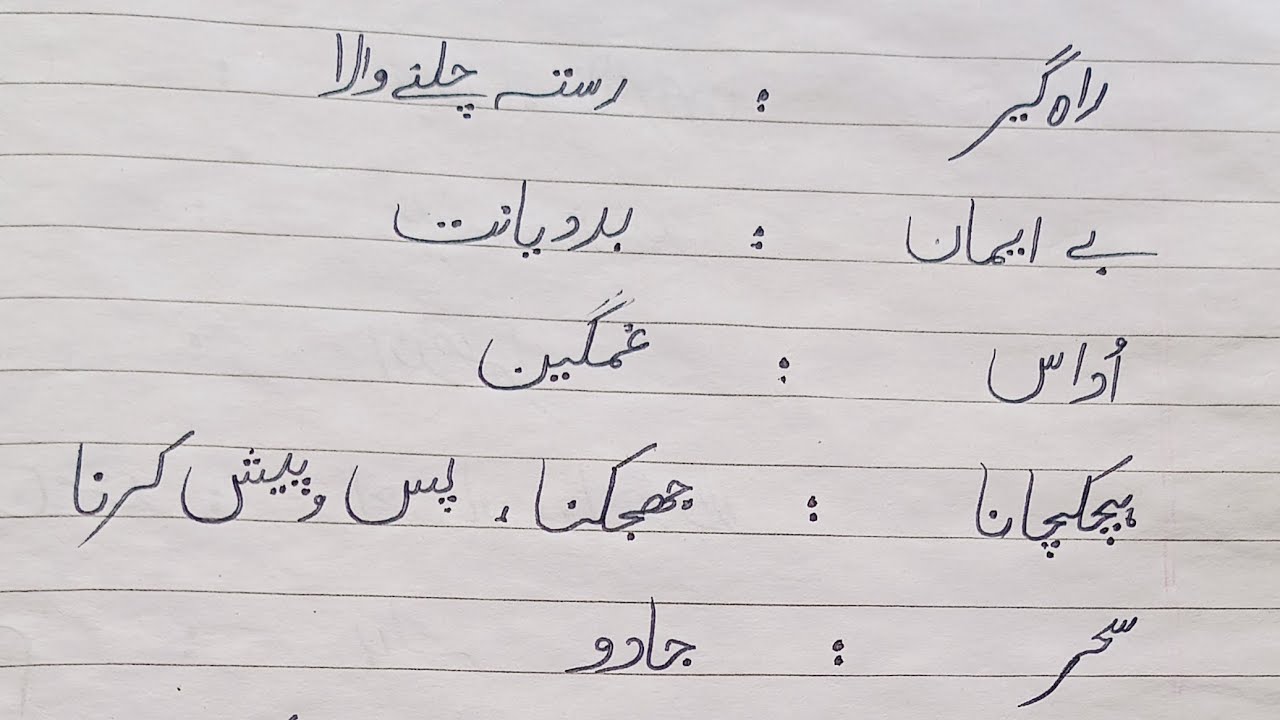 راہ گیر : رستہ چلنے والا
بے ایمان : بددیانت
اُداس : غمگین
ہچکچانا : جھجکنا، پس و پیش کرنا
سحر : جادو